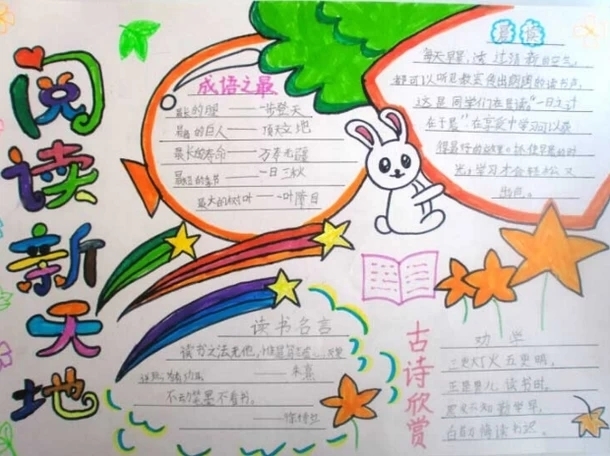 阅读新天地
成语之最
最 的 — 一步登天
最 的巨人 — 顶天立地
最长的寿命 — 万寿无疆
最 的季节 — 一日三秋
最大的树叶 — 一叶障目
晨读
每天早晨,
都可以听见教室传出朗朗的读书声。
这是同学们在晨读"一日之计
在于晨"在 学习可以获
得最好的
学习才会轻松又
读书名言
读书之法无他,
— 朱熹
不动笔墨不看书。
— 徐特立
古诗欣赏
劝学
三更灯火五更明,
正是男儿读书时,
黑发不知勤学早,
白首方悔读书迟。